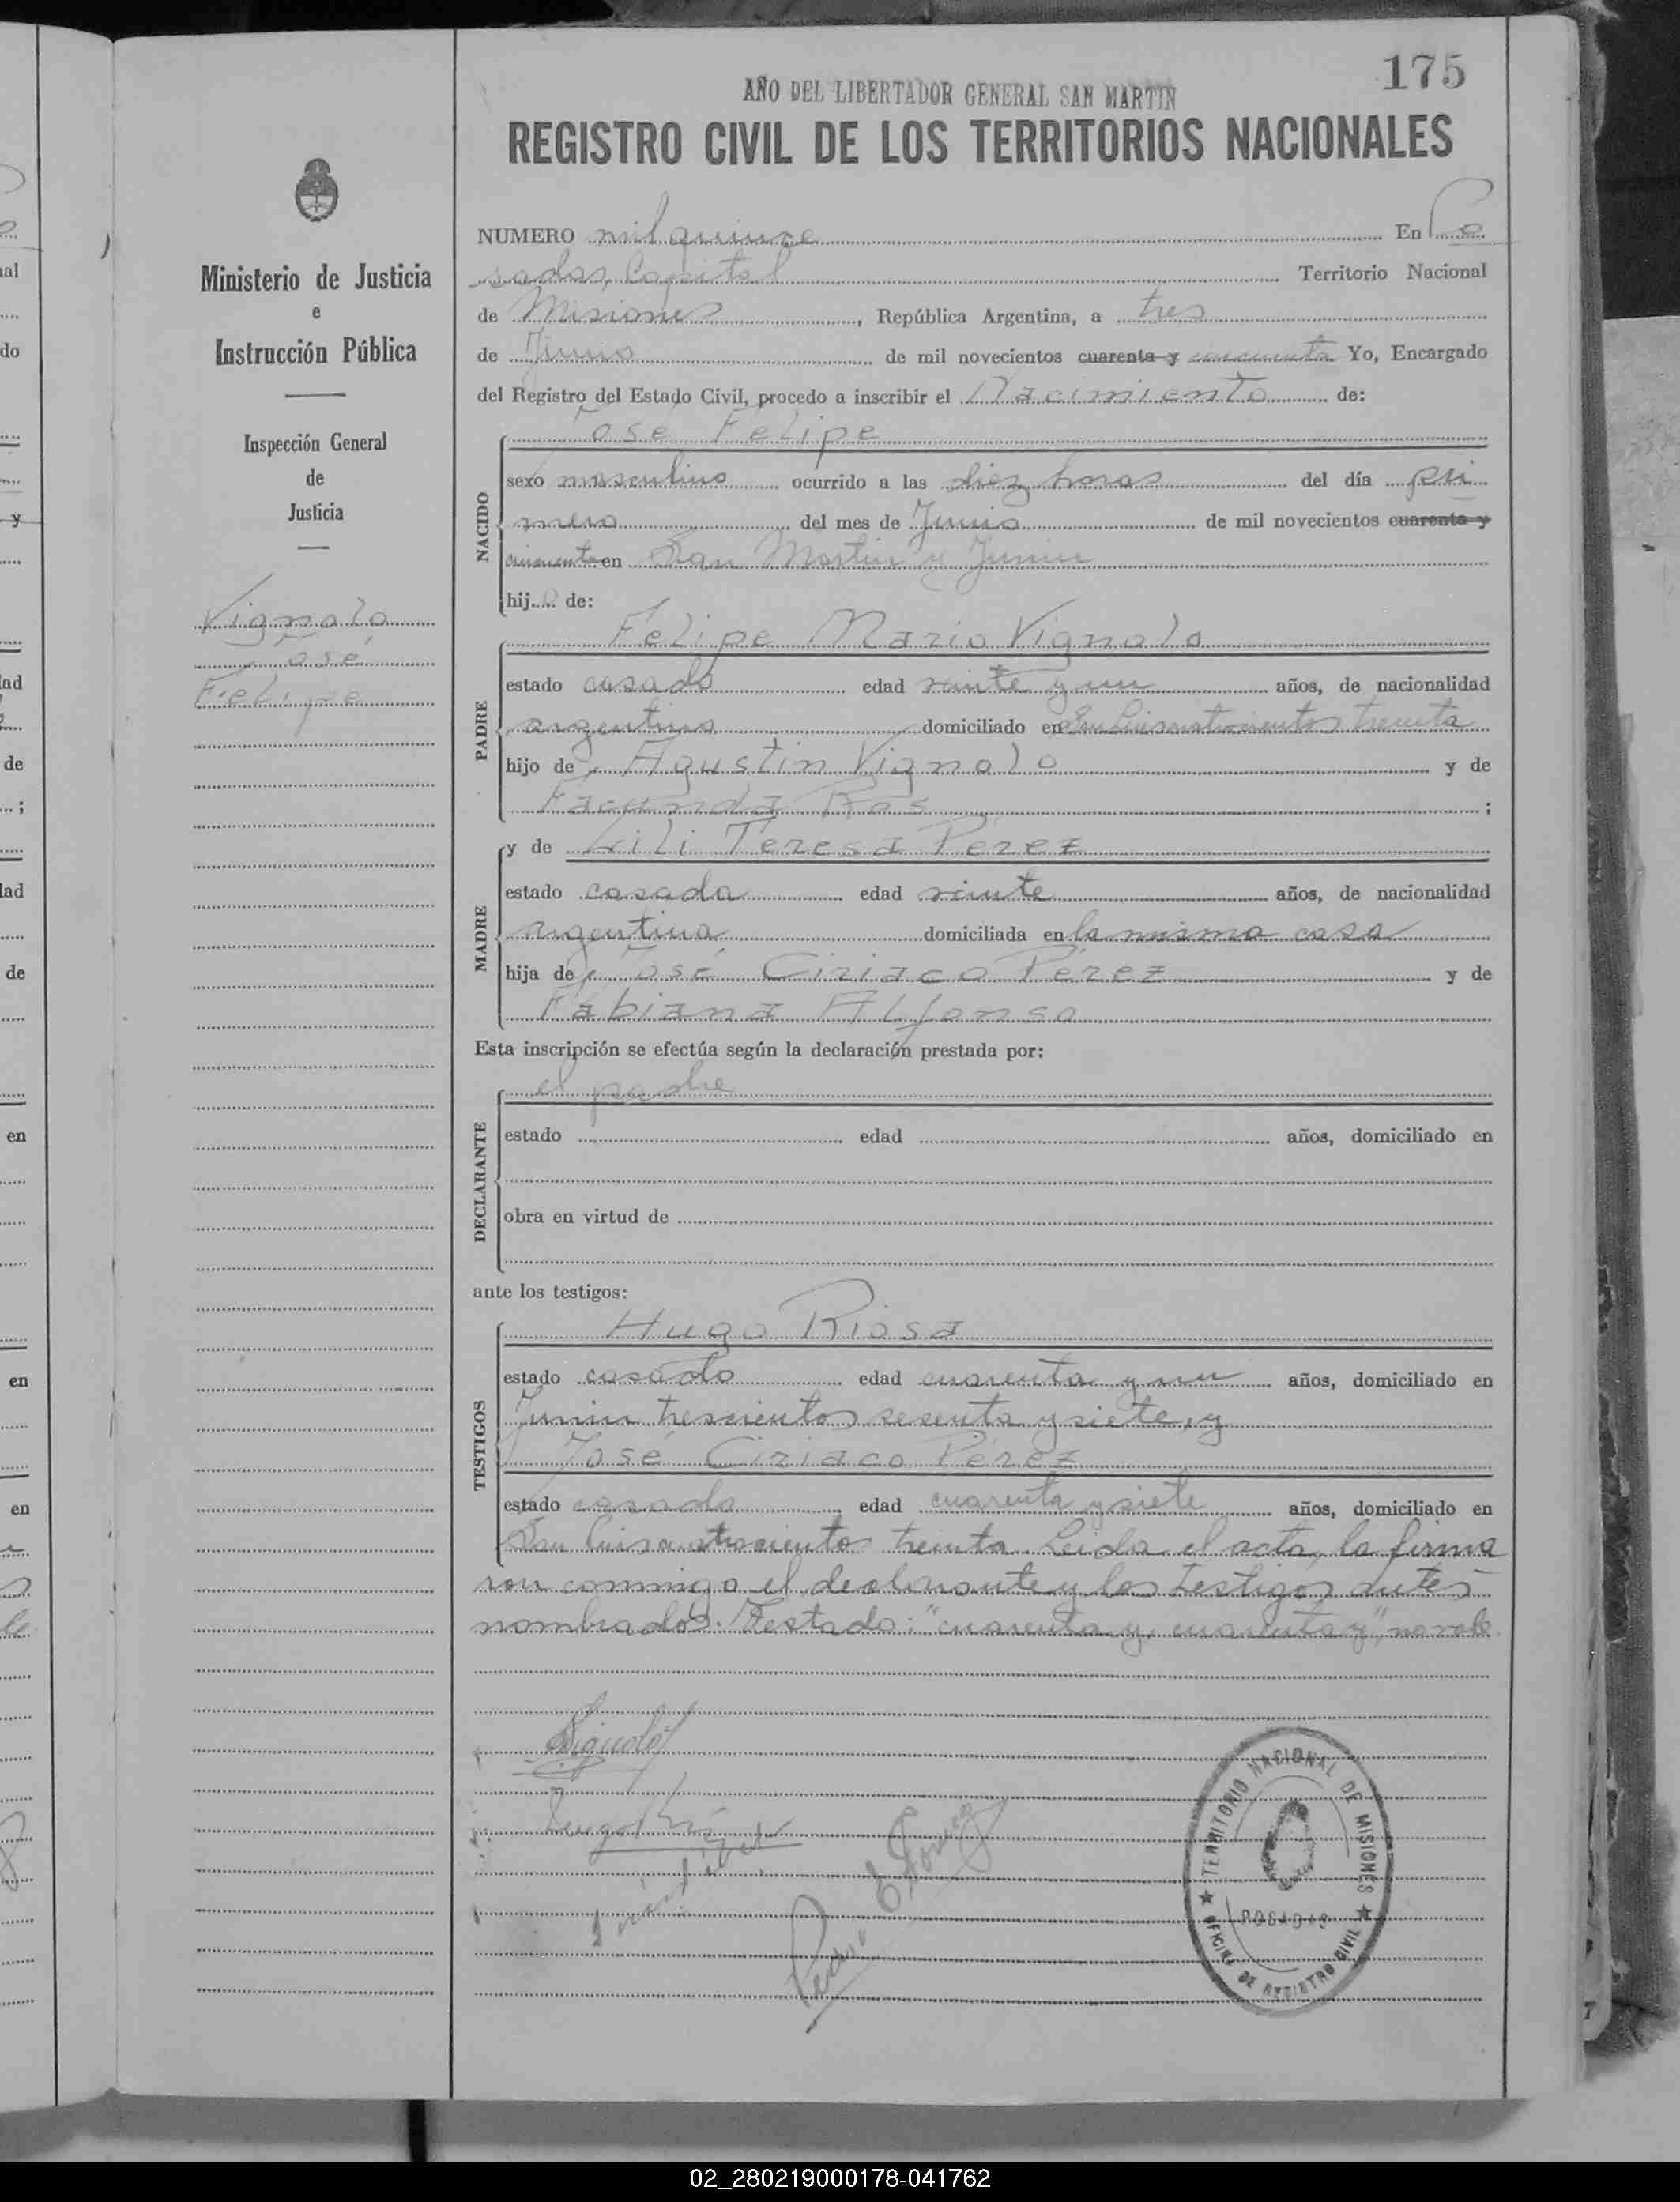 175
AÑO DEL LIBERTADOR GENERAL SAN MARTIN
REGISTRO CIVIL DE LOS TERRITORIOS NACIONALES
Ministerio de Justicia
e
Instrucción Pública
Inspección General
de
Justicia
Vignolo
José
Felipe
NUMERO mil quince En Po
sadas, Capital Territorio Nacional
de Misiones, República Argentina, a tres
de Junio de mil novecientos cuarenta y cincuenta Yo, Encargado
del Registro del Estado Civil, procedo a inscribir el Nacimiento de:
NACIDO
José Felipe
sexo masculino ocurrido a las diez horas del día pri
mero del mes de Junio de mil novecientos cuarenta y
cincuenta en San Martin y Junin
hijo de:
PADRE
Felipe Mario Vignolo
estado casado edad veinte y un años, de nacionalidad
argentino domiciliado en San Luis cuatrocientos treinta
hijo de Agustin Vignolo y de
Facunda Ros;
MADRE
y de Lili Teresa Pérez
estado casada edad veinte años, de nacionalidad
argentina domiciliada en la misma casa
hija de José Ciriaco Pérez y de
Fabiana Alfonso
Esta inscripción se efectúa según la declaración prestada por:
DECLARANTE
el padre
estado edad años, domiciliado en
obra en virtud de
ante los testigos:
TESTIGOS
Hugo Riosa
estado casado edad cuarenta y un años, domiciliado en
Junin trescientos sesenta y siete, y
José Ciriaco Pérez
estado casado edad cuarenta y siete años, domiciliado en
San Luis cuatrocientos treinta. Leida el acta, la firma
ron conmigo el declarante y los testigos antes
nombrados. Testado: "cuarenta y, cuarenta y", no vale.
Vignolo
TERRITORIO NACIONAL DE MISIONES
POSADAS
OFICINA DE REGISTRO CIVIL
02_280219000178-041762